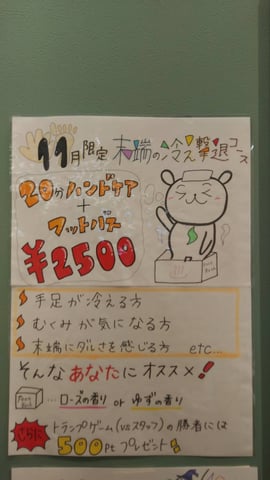 11月限定 末端の冷え撃退コース
20分ハンドケア
+
フットバス
¥2500
手足が冷える方
むくみが気になる方
末端にダルさを感じる方 etc...
そんなあなたにオススメ!
…ローズの香り or ゆずの香り
さらに トランプゲーム(vsスタッフ)の勝者には
500ptプレゼント!